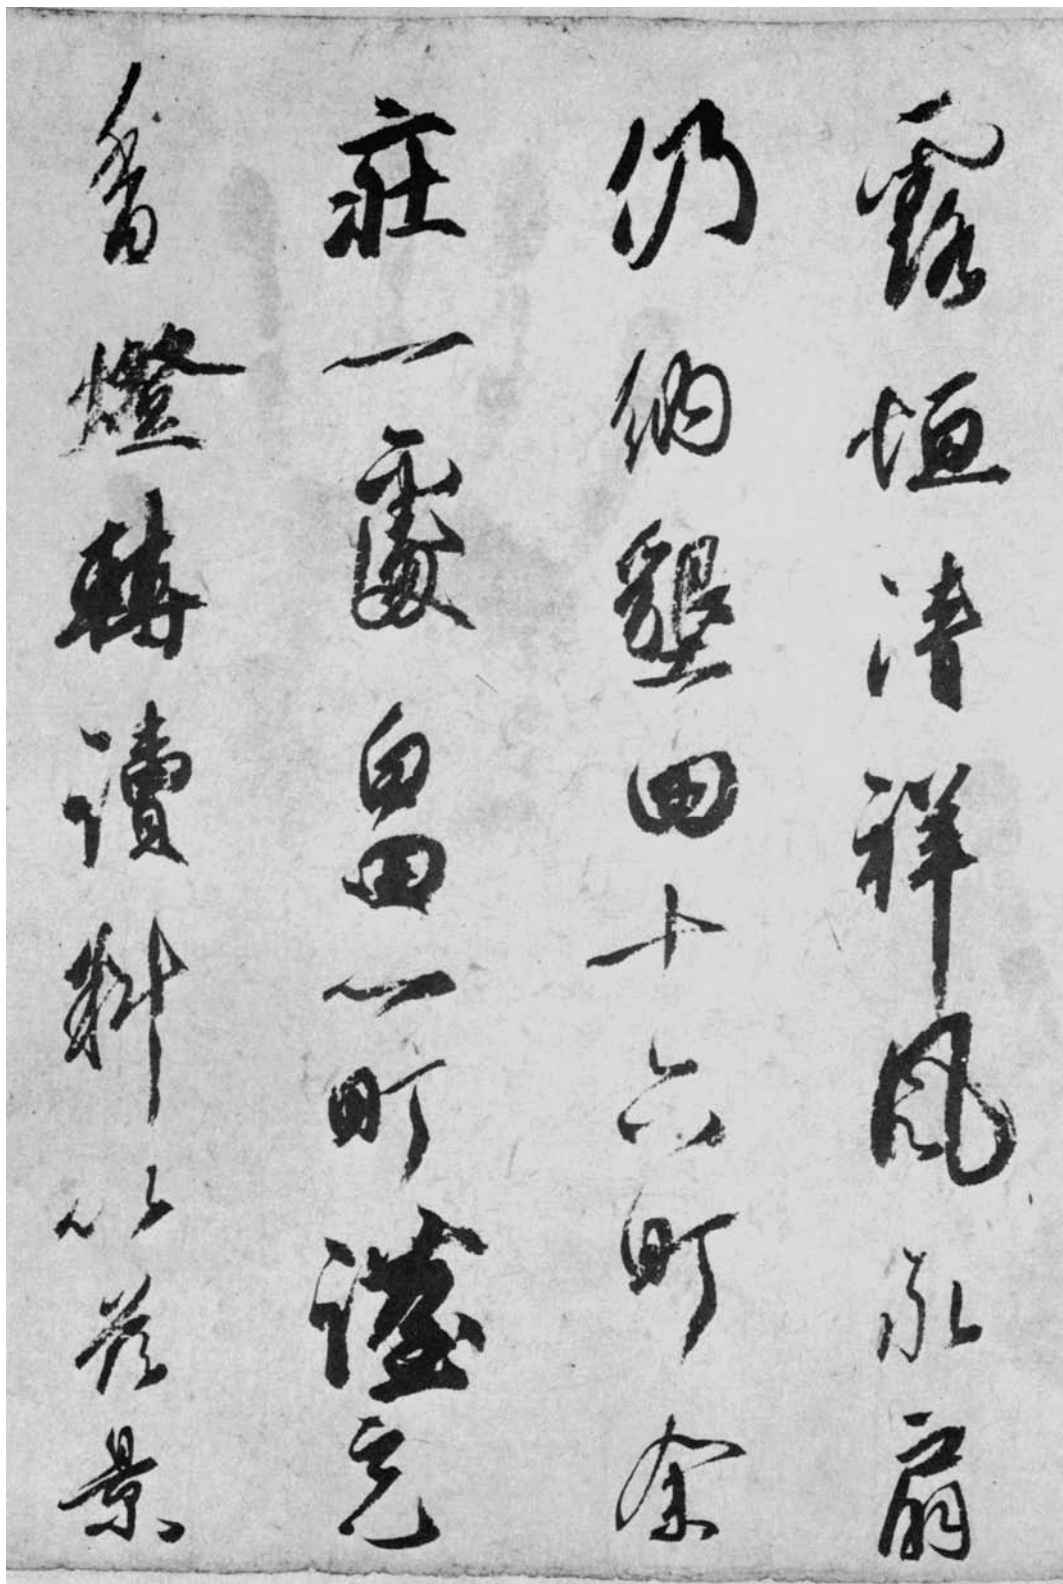 露恒清祥風永扇
仍納墾田十六町余
庄一處畠一町謹充
香燈轉讀料以茲景